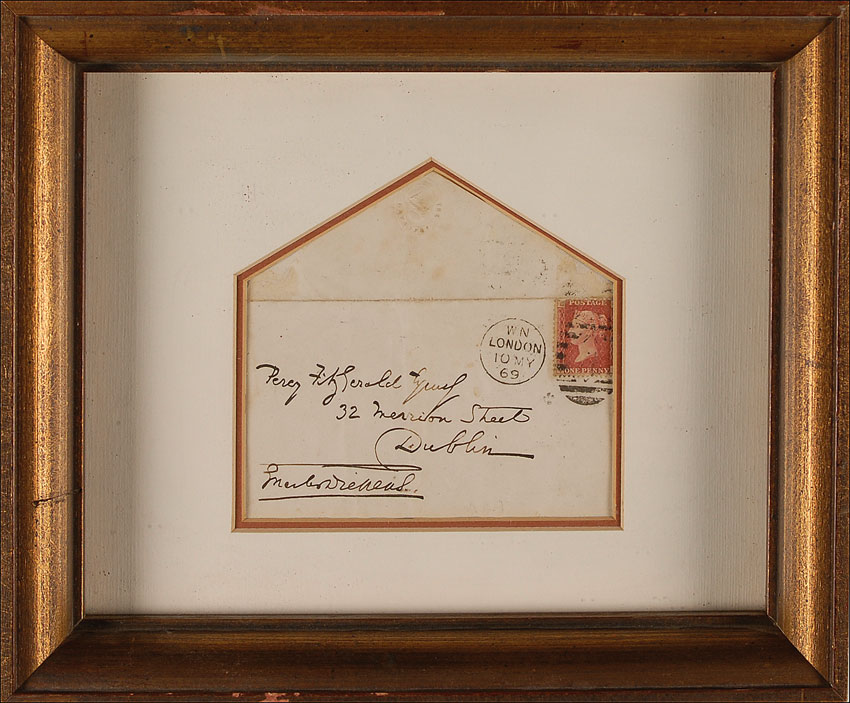 POSTAGE
ONE PENNY
WN
LONDON
10 MY
69
Percy FitzGerald Esquire
32 Merrion Street
Dublin
Charles Dickens